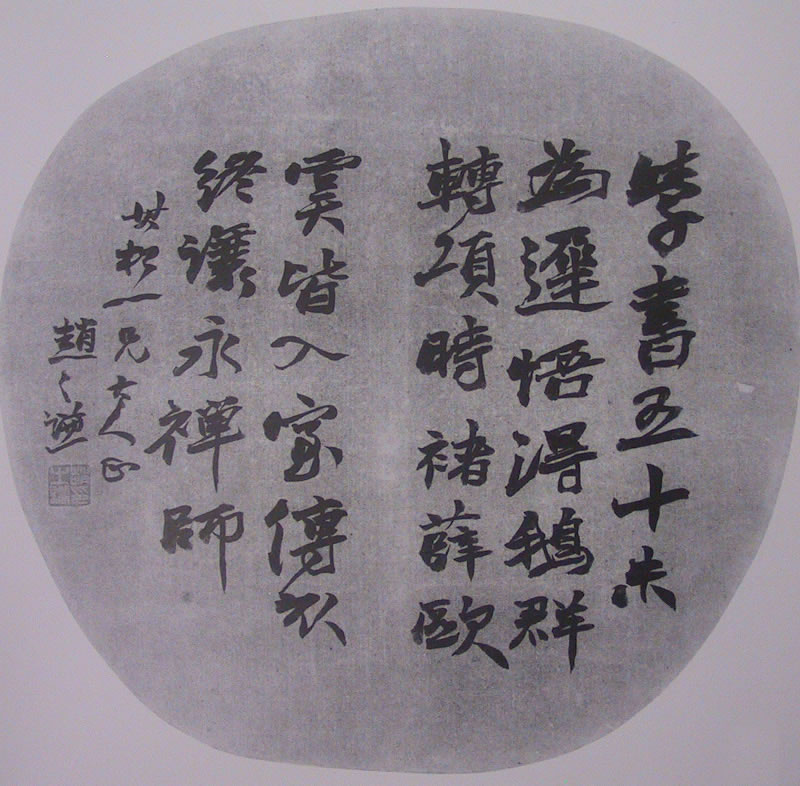 學書五十未
為遲悟得鵝群
轉項時褚薛歐
虞皆入室傳衣
終讓永禪師
一兄大人正
趙之謙